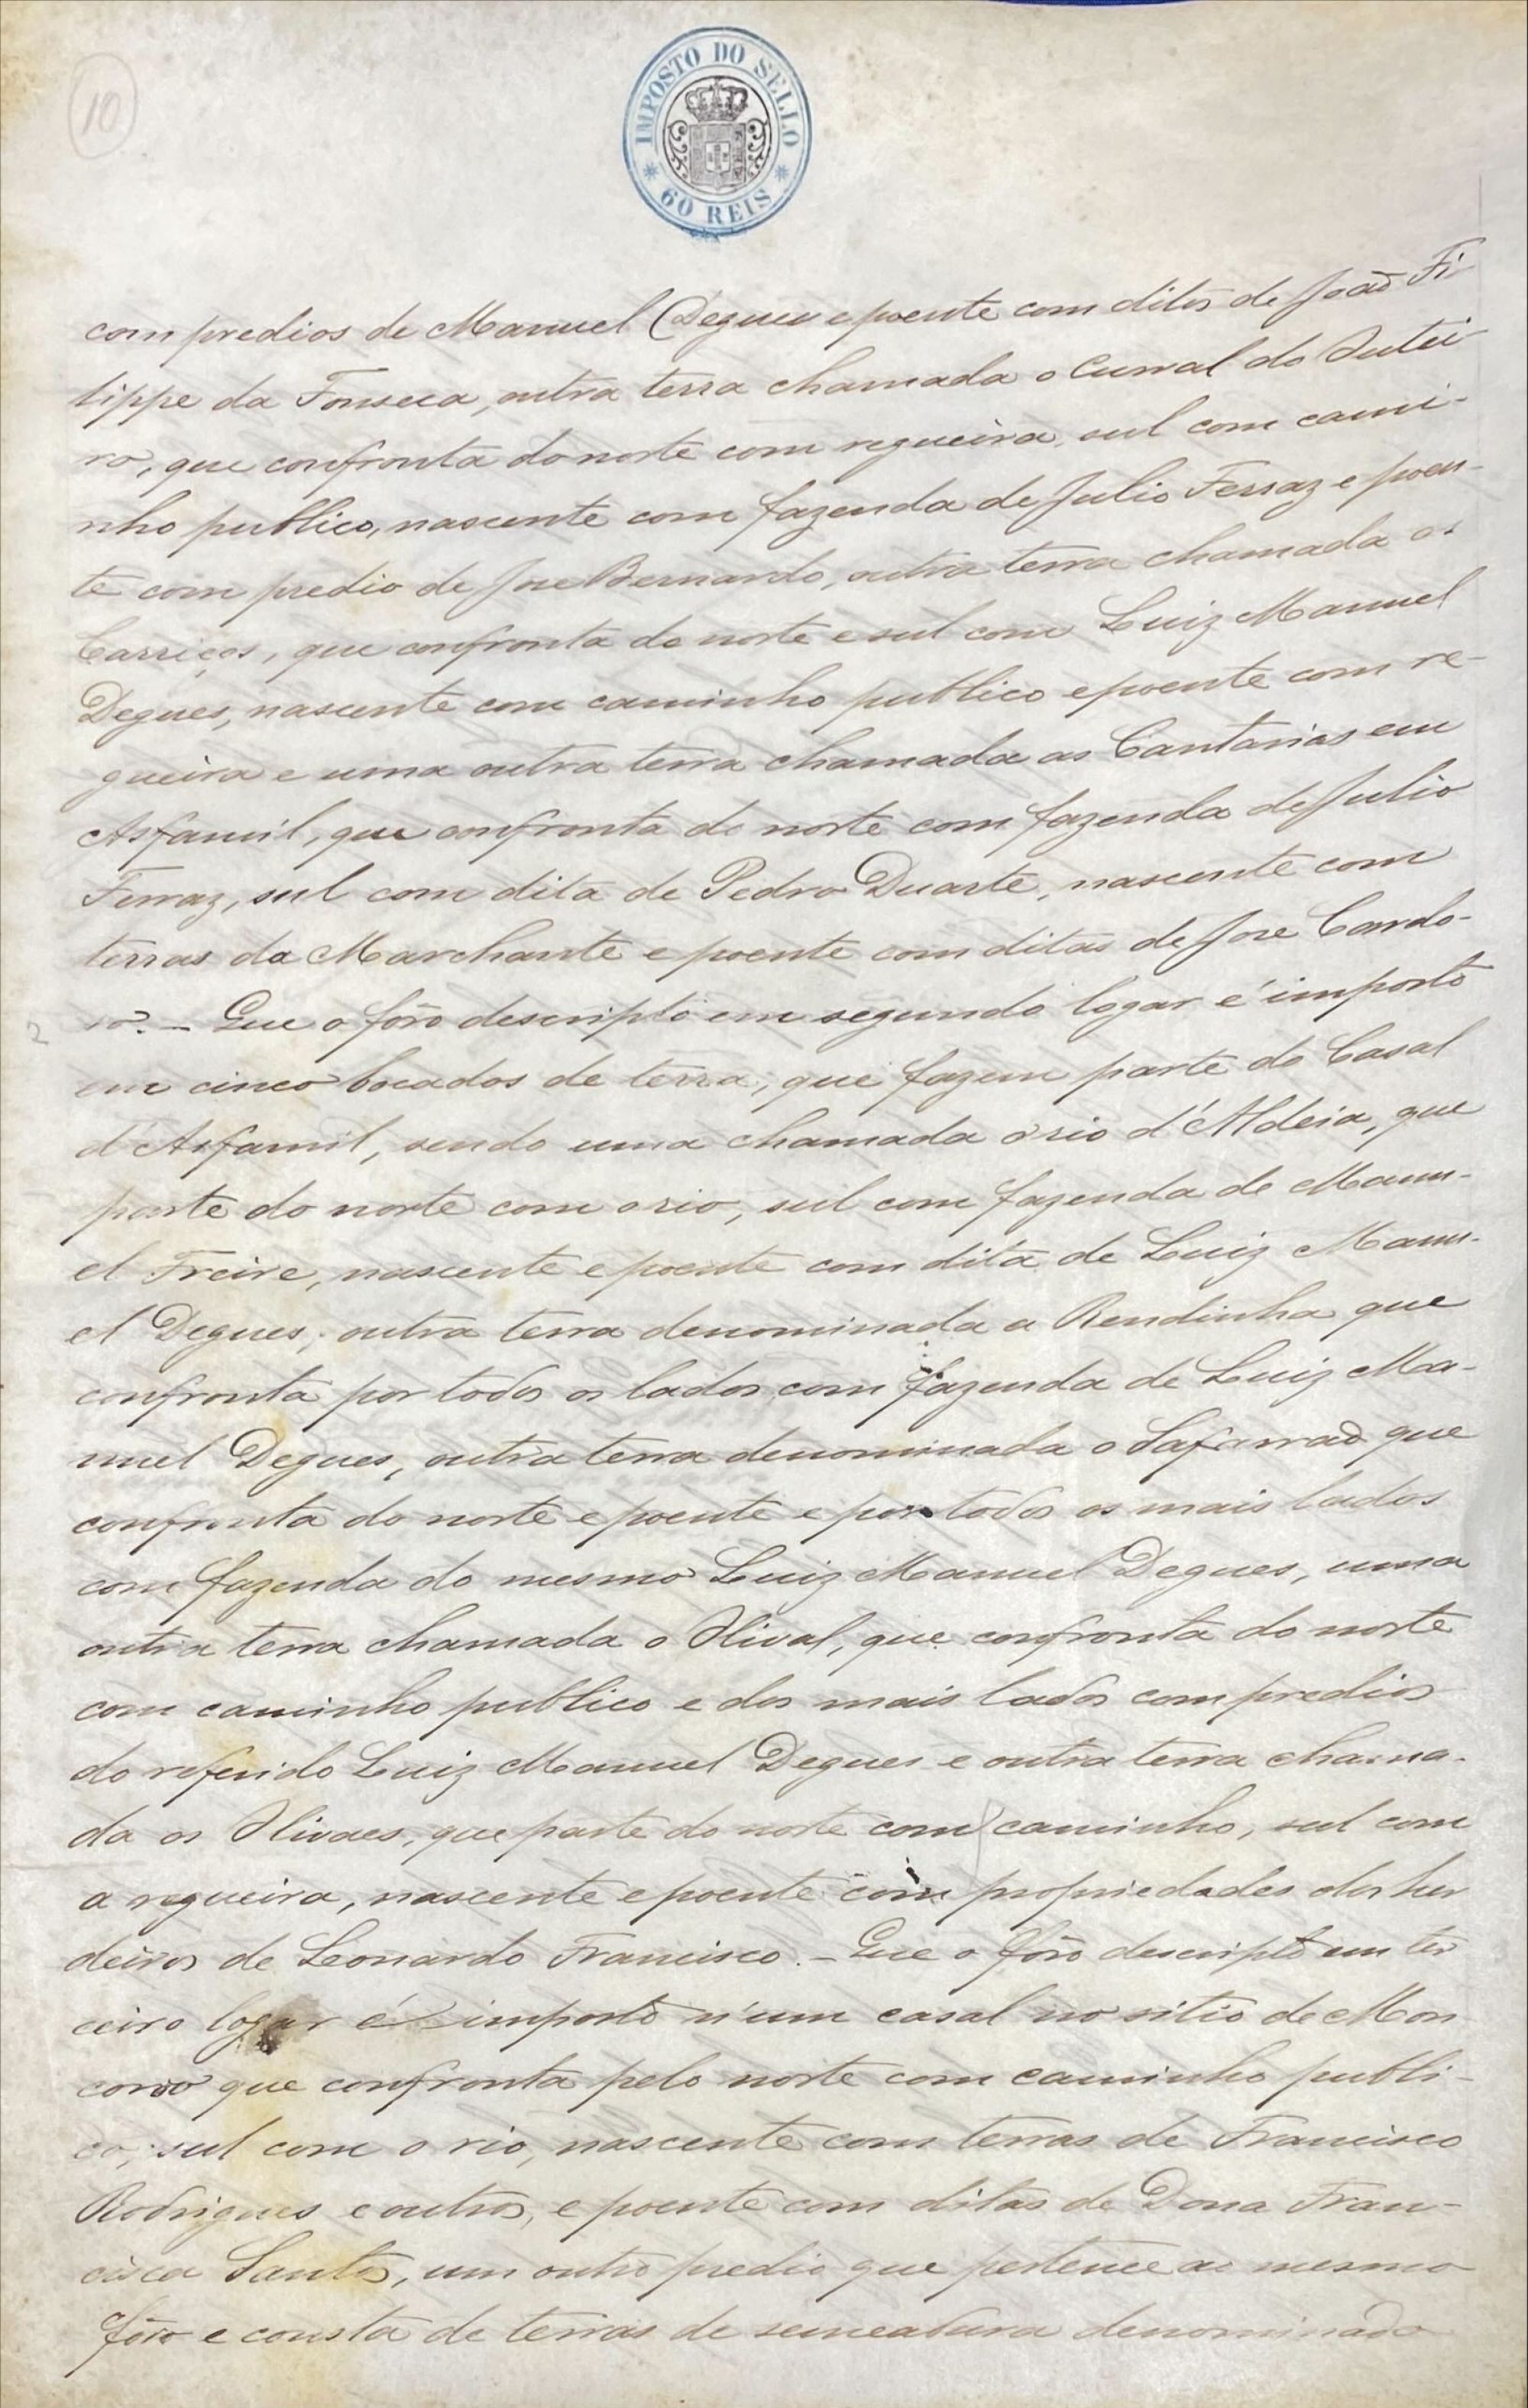 10
IMPOSTO DO SELLO
60 REIS
com predios de Manuel Degues e poente com ditos de João Fi-
lippe da Fonseca, outra terra chamada o Curral do Outei-
ro, que confronta do norte com regueira, sul com cami-
nho publico, nascente com fazenda de Julio Ferraz e poen-
te com predio de Jose Bernardo, outra terra chamada os
Carriços, que confronta do norte e sul com Luiz Manuel
Degues, nascente com caminho publico e poente com re-
gueira e uma outra terra chamada as Cantarias em
Asfamil, que confronta do norte com fazenda de Julio
Ferraz, sul com dita de Pedro Duarte, nascente com
terras do Marchante e poente com ditas de Jose Cardo-
so. - Que o fôro descripto em segundo logar é imposto
em cinco bocados de terra, que fazem parte do Casal
d'Asfamil, sendo uma chamada o rio d'Aldeia, que
parte do norte com o rio, sul com fazenda de Manu-
el Freire, nascente e poente com dita de Luiz Manu-
el Degues; outra terra denominada a Rendinha que
confronta por todos os lados com fazenda de Luiz Ma-
nuel Degues, outra terra denominada o Safarrão que
confronta do norte e poente e por todos os mais lados
com fazenda do mesmo Luiz Manuel Degues, uma
outra terra chamada o Olival, que confronta do norte
com caminho publico e dos mais lados com predios
do referido Luiz Manuel Degues e outra terra chama-
da os Olivaes, que parte do norte com caminho, sul com
a regueira, nascente e poente com propriedades dos her
deiros de Leonardo Francisco. - Que o fôro descripto em ter
ceiro logar é imposto n'um casal no sitio de Mon
corvo que confronta pelo norte com caminho publi-
co, sul com o rio, nascente com terras de Francisco
Rodrigues e outros, e poente com ditas de Dona Fran-
cisca Santos, um outro predio que pertence ao mesmo
fôro e consta de terras de semeadura denominado